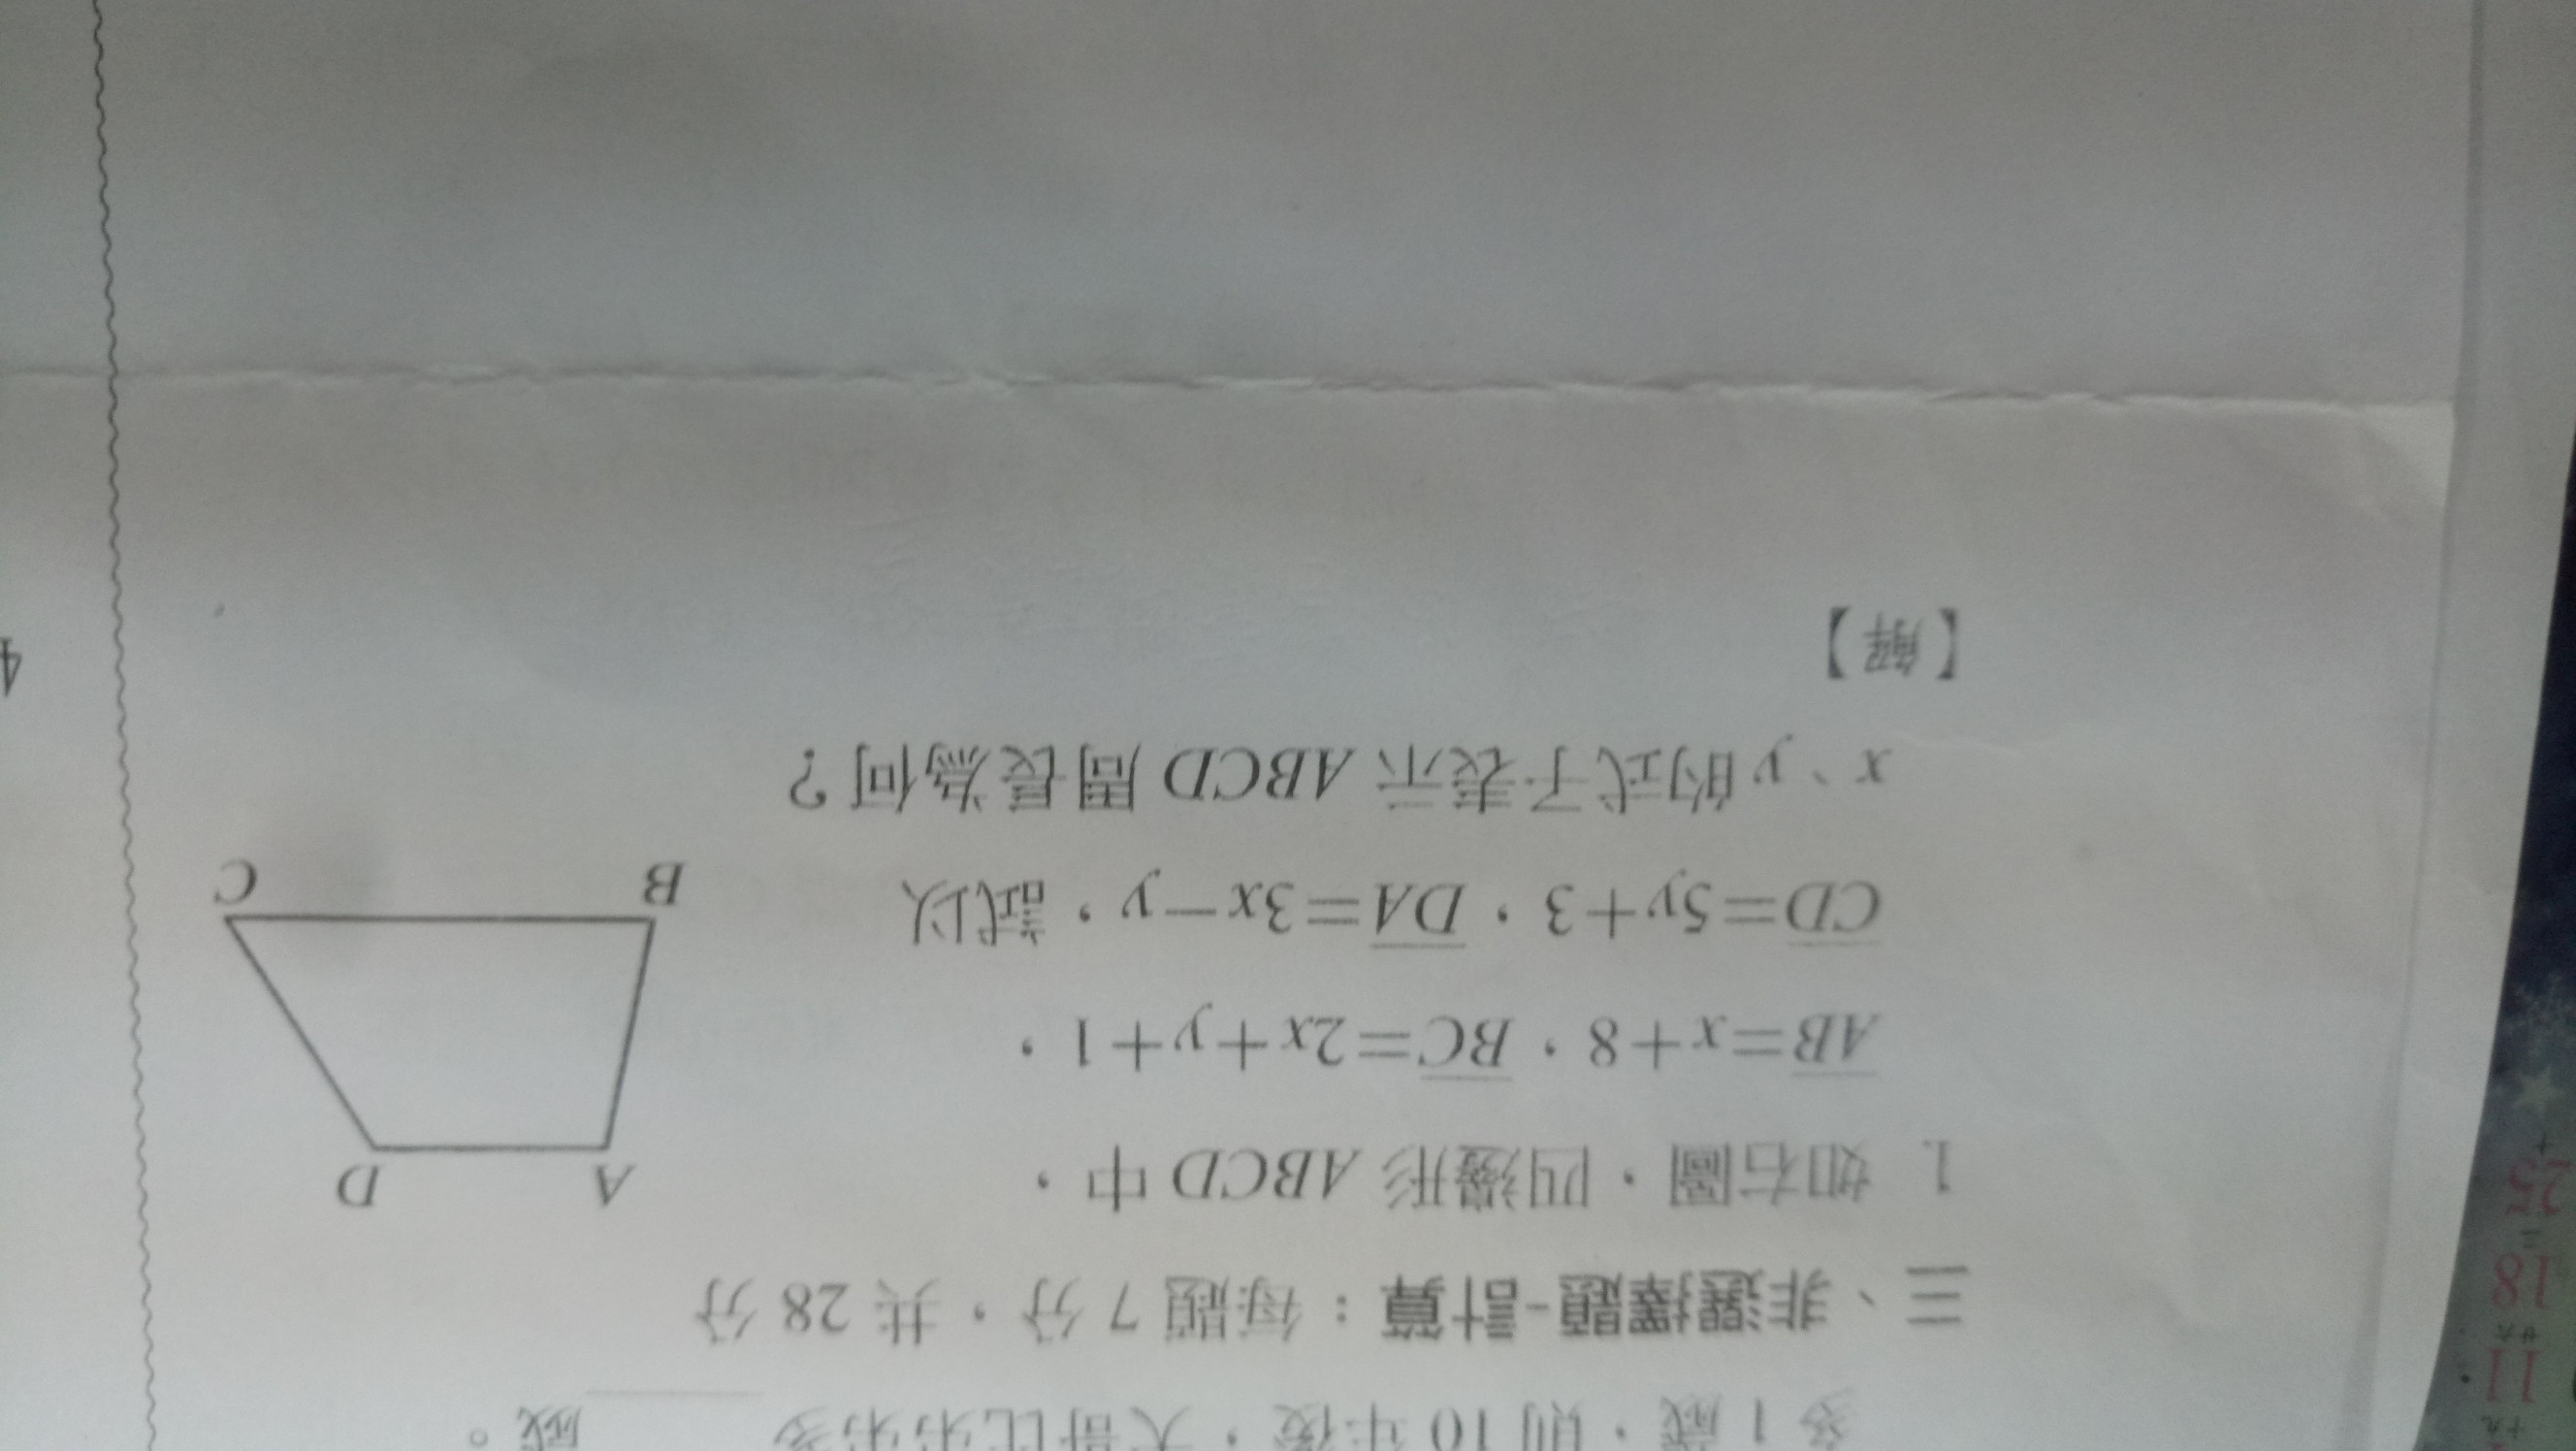 多 1 歲,則 10 年後,大哥比弟弟多____歲。
三、非選擇題-計算:每題 7 分,共 28 分
1. 如右圖,四邊形 ABCD 中,
AB=x+8,BC=2x+y+1,
CD=5y+3,DA=3x-y,試以
x、y 的式子表示 ABCD 周長為何?
A
D
B
C
【解】
4
11
廿六
18
三
25
十